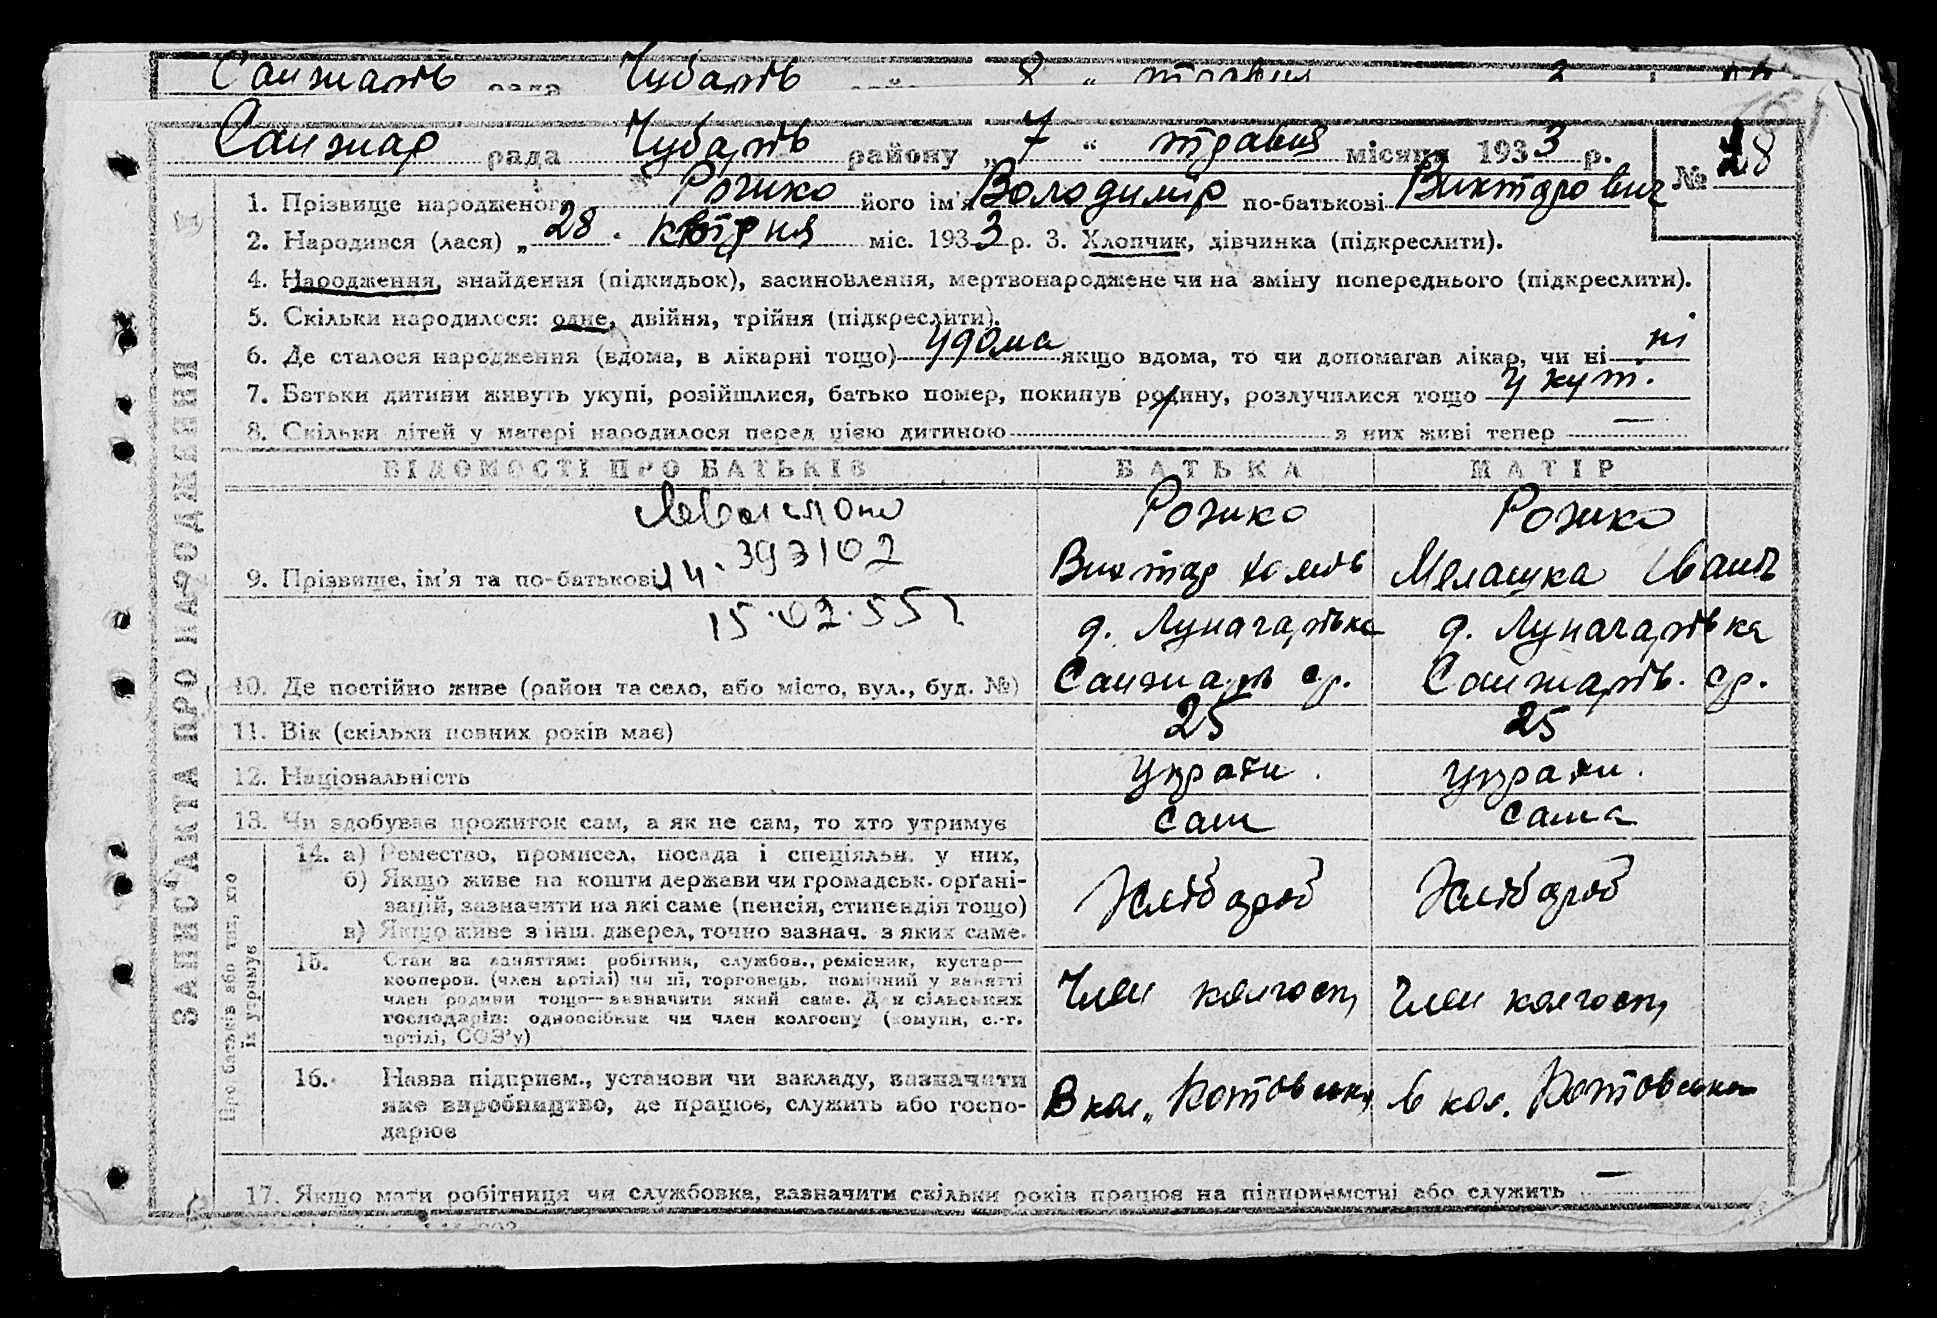 Санжарів рада Чубарів 8 " травня 3
Санжар рада Чубарів району „ 7 " травня місяця 1933 р. № 28
1. Прізвище народженого Рожко його ім'я Володимір по-батькові Виктарович
2. Народився (лася) „ 28 " квітня міс. 1933 р. 3. Хлопчик, дівчинка (підкреслити).
4. Народження, знайдення (підкидьок), засиновлення, мертвонароджене чи на зміну попереднього (підкреслити).
5. Скільки народилося: одне, двійня, трійня (підкреслити).
6. Де сталося народження (вдома, в лікарні тощо) удома якщо вдома, то чи допомагав лікар, чи ні ні
7. Батьки дитини живуть укупі, розійшлися, батько помер, покинув родину, розлучилися тощо у куп.
8. Скільки дітей у матері народилося перед цією дитиною з них живі тепер —
ВІДОМОСТІ ПРО БАТЬКІВ БАТЬКА МАТІР
Рожко Рожко
393102
9. Прізвище, ім'я та по-батькові Виктар Меланка Іванів
15.02.55
д. Луначарівка д. Луначарівка
10. Де постійно живе (район та село, або місто, вул., буд. №) Санжарів ср. Санжарів. ср.
11. Вік (скільки повних років має) 25 25
12. Національність україн. україн.
13. Чи здобуває прожиток сам, а як не сам, то хто утримує сам сама
ЗАПИС АКТА ПРО НАРОДЖЕННЯ
Про батьків або тих, хто їх утримує
14. а) Ремество, промисел, посада і спеціяльн. у них,
б) Якщо живе на кошти держави чи громадськ. орґані-
зацій, зазначити на які саме (пенсія, стипендія тощо) Хлібороб Хлібороб
в) Якщо живе з інш. джерел, точно зазнач. з яких саме.
15. Стан за заняттям: робітник, службов., ремісник, кустар—
кооперов. (член артілі) чи ні, торговець, помічний у занятті
член родини тощо—зазначити який саме. Для сільських Член колгосп, Член колгосп,
господарів: одноосібник чи член колгоспу (комуни, с.-г.
артілі, СОЗ'у)
16. Назва підприєм., установи чи закладу, зазначити
яке виробництво, де працює, служить або госпо- В кол. Котовська в кол. Котовська
дарює
17. Якщо мати робітниця чи службовка, зазначити скільки років працює на підприємстві або служить —